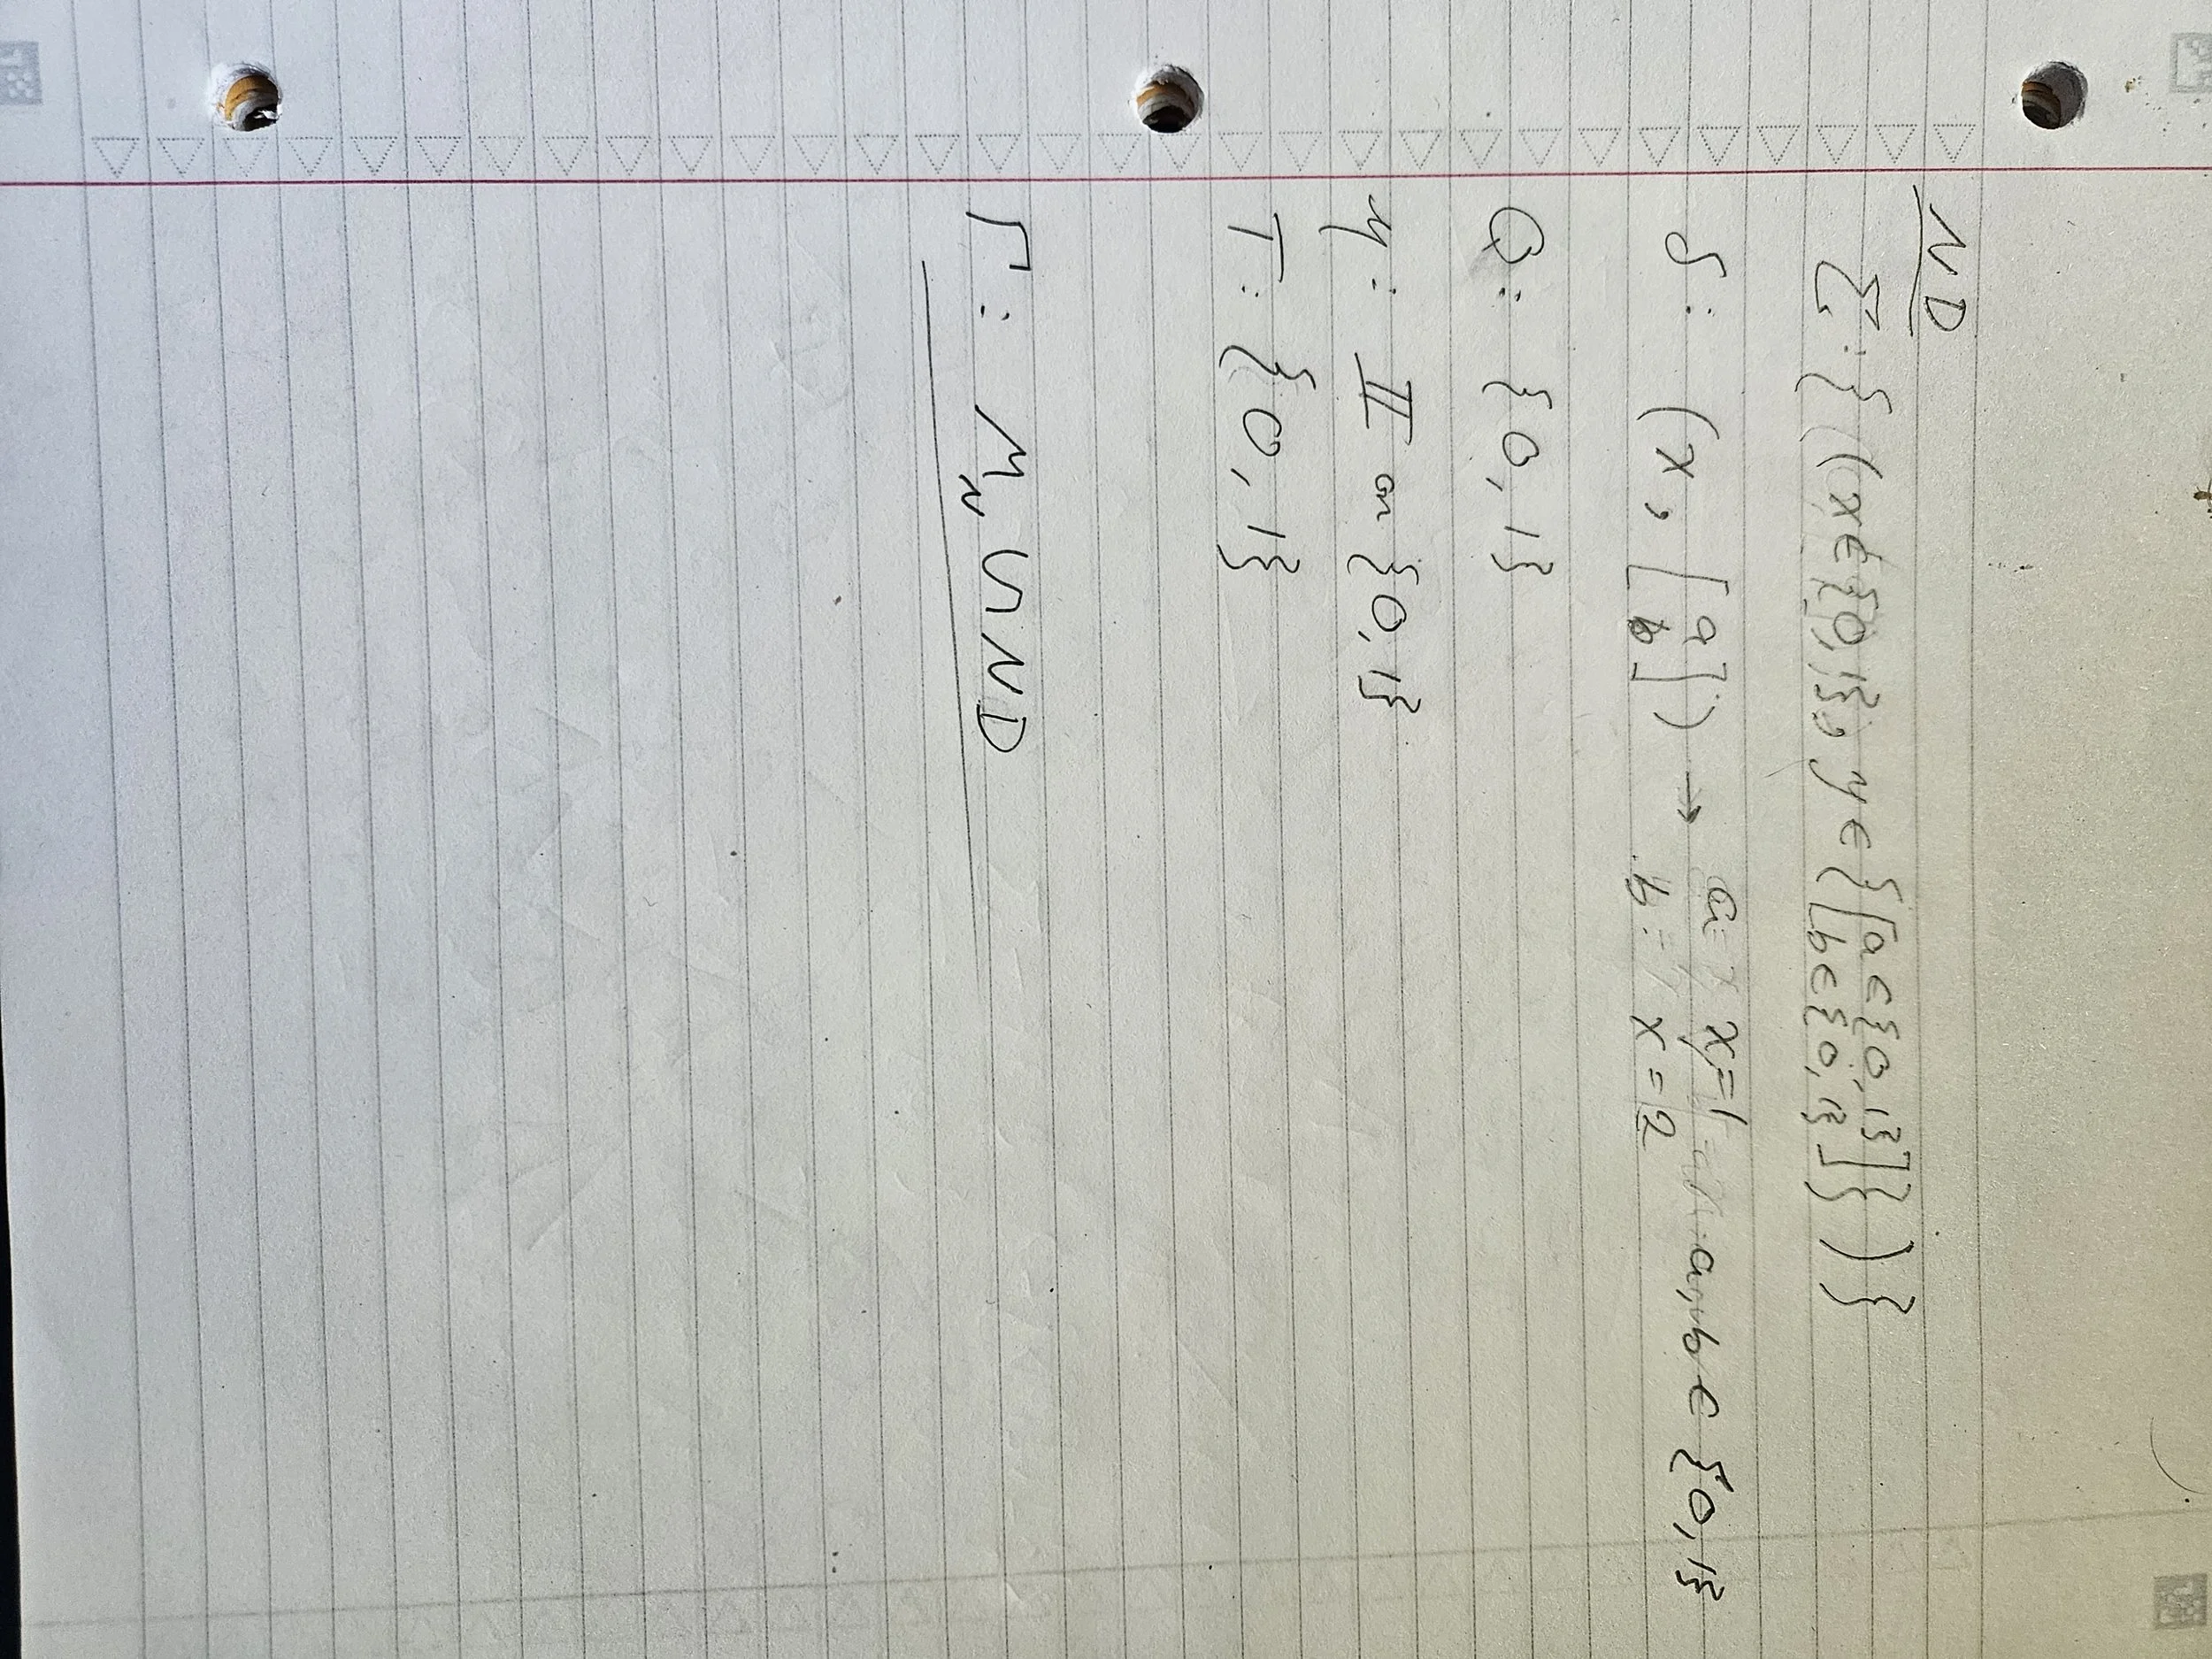 ND
Σ: {(x∈{0,1}, y∈{[a∈{0,1}] [b∈{0,1}]})}
δ: (x, [a b]) → a: x=1 a,b ∈ {0,1}
b: x=2
Q: {0,1}
II on {0,1}
T: {0,1}
Γ: M_N U ND